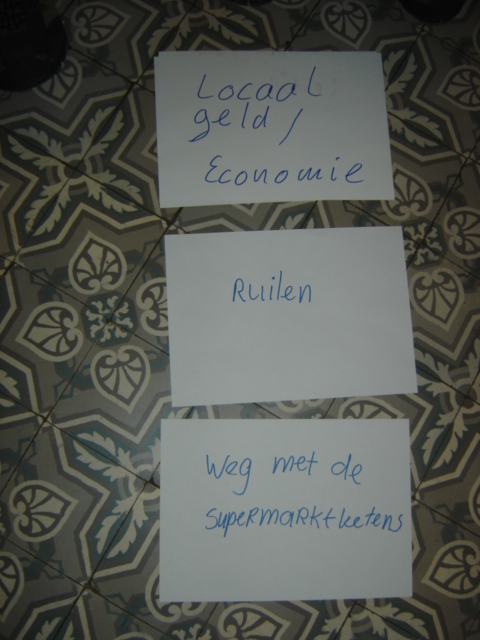 Locaal
geld /
Economie
Ruilen
Weg met de
supermarktketens